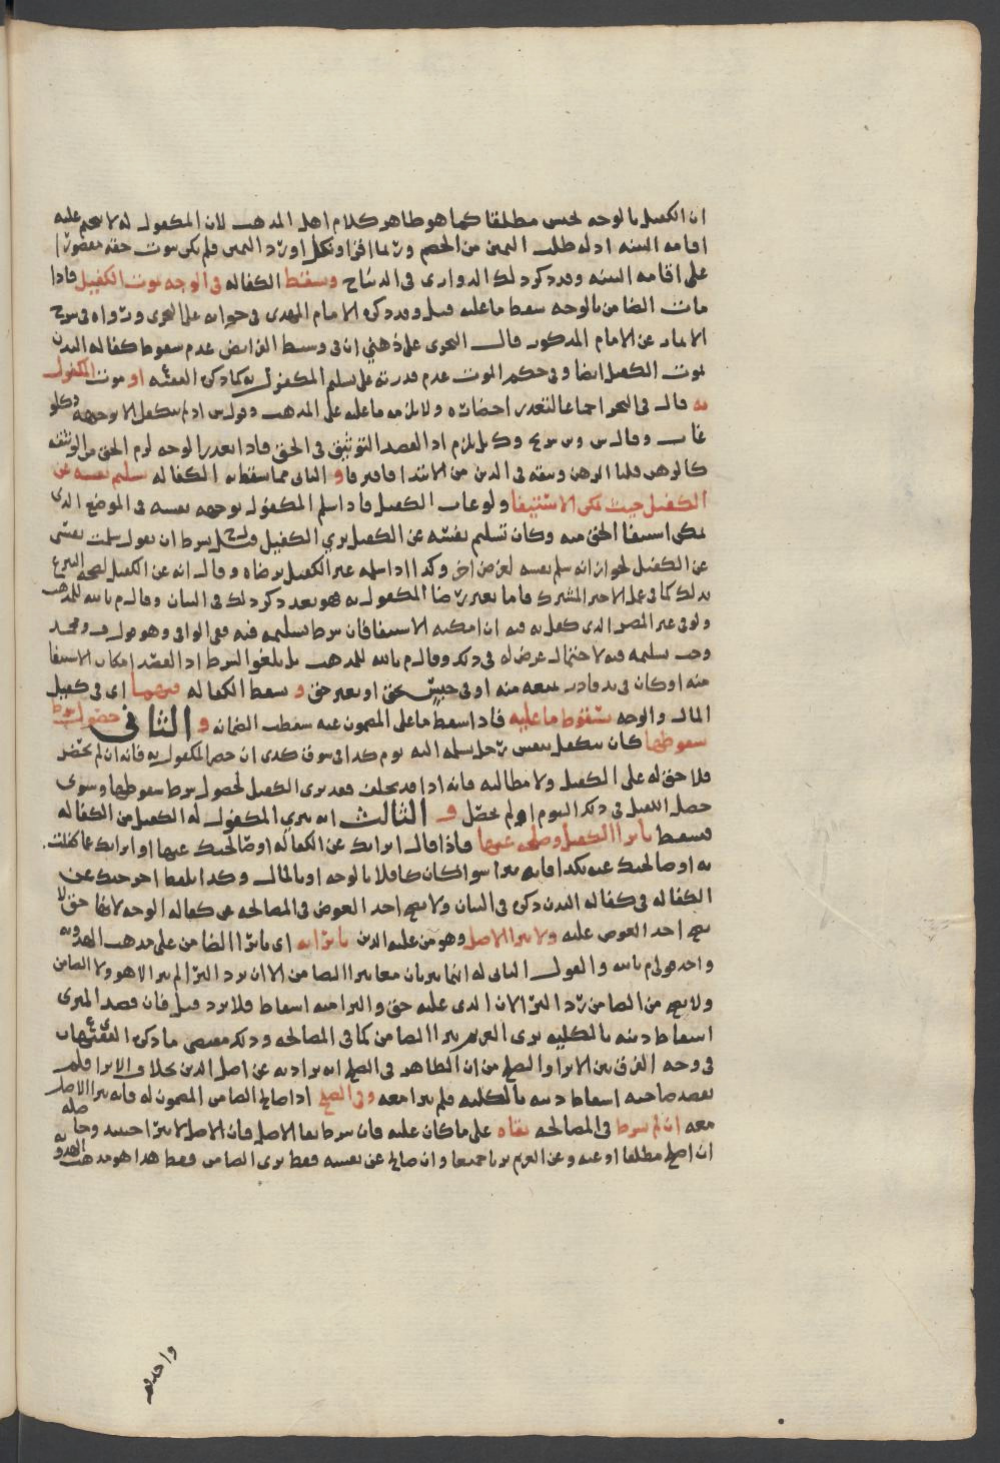 ان الكفيل بالوجه يحبس مطلقا كما هو ظاهر كلام اهل المذهب لان المكفول له لا يجب عليه
اقامة البينه اذ له طلب اليمين من الخصم وربما اقر او نكل او رد اليمين فلم يكن ثبوت حقه مقصورا
على اقامة البينه وقد ذكر ذلك الدواري في الديباج وسقط الكفاله في الوجه بموت الكفيل فاذا
مات الضامن بالوجه سقط ما عليه قيل وقد ذكره الامام المهدي في جوابه على النجري ورواه في شرح
الاثمار عن الامام المذكور قال النجري على ذهني ان في وسيط الفرايض عدم سقوط كفالة البدن
بموت الكفيل ايضا وفي حكم الموت عدم قدرته على تسليم المكفول به كما ذكره الفقيه او موت المكفول
به قال في البحر اجماعا لتعذر احضاره ولا يلزمه ما عليه على المذهب وقول س اذ لم يتكفل الا بوجهه وكلو
غاب وقال س وس شريح وك بل يلزم اذ القصد التوثيق في الحق فاذا تعذر الوجه لزم الحق من الوثيقه
كالرهن قلنا الرهن وثيقه في الدين من الابتدا فافترقا و الثاني مما يسقط به الكفاله تسليم نفسه عن
الكفيل حيث يمكن الاستيفا ولو غاب الكفيل فاذا سلم المكفول بوجهه نفسه في الموضع الذي
يمكن استيفا الحق منه وكان تسليم نفسه عن الكفيل بري الكفيل بشرط ان يقول سلمت نفسي
عن الكفيل لجواز انه سلم نفسه لغرض اخر وكذا اذا سلمه غير الكفيل برضاه وقال انه عن الكفيل لصحة التبرع
بذلك كما في عمل الاجير المشترك فاما بغير رضا المكفول به فهو بعد ذكر ذلك في البيان وقال م بالله للمذهب
ولو في غير المصر الذي كفل به فيه ان امكنه الاستيفا فان شرط تسليمه فيه ففي الوافي وهو قول ف ومحمد
وجب تسليمه فيه لاحتمال عرض له في ذلك وقال م بالله للمذهب بل يلغو الشرط اذ القصد امكان الاستيفا
منه او كان في يد قادر يمنعه منه او في حبس بحق او بغير حق و سقط الكفاله فيهما اي في كفيل
المال والوجه بسقوط ما عليه فاذا سقط ما على المضمون عنه سقطت الضمانه و الثاني حصول شرط
سقوطهما كان يتكفل بنفس رجل يسلمه اليه يوم كذا في سوق كذا ان حضر المكفول به فانه ان لم يحضر
فلا حق له على الكفيل ولا مطالبه فانه اذا قد تخلف فقد بري الكفيل لحصول شرط سقوطها وسوى
حصل الكفيل في ذلك اليوم او لم يحصل و الثالث انه يبري المكفول له الكفيل من الكفاله
فيسقط بابراء الكفيل وصلحه عنها فاذا قال ابراتك عن الكفاله او صالحتك عنها او ابراتك مما كفلت
به او صالحتك عنه بكذا فانه يبرا سوا كان كافلا بالوجه او بالمال وكذا بلفظ اخرجتك عن
الكفاله في كفالة البدن ذكره في البيان ولا يصح اخذ العوض في المصالحه عن كفالة الوجه لانها حق لا
يصح اخذ العوض عليه ولا يبرا الاصل وهو من عليه الدين بابرائه اي بابرا الضامن على مذهب الهدويه
واحد قولي م بالله والقول الثاني له انهما يبريان معا ببرا الضامن الا ان يرد البرا لم يبرا لا هو ولا الضامن
ولا يصح من الضامن رد البرا لان الذي عليه حق والبرا منه اسقاط فلا يرد قيل فان قصد المبري
اسقاط دينه بالكليه بري الغريم ببرا الضامن كما في المصالحه وذلك مقتضى ما ذكره الفقيهان
في وجه الفرق بين الابرا والصلح من ان الظاهر في الصلح انه يراد به عن اصل الدين بخلاف الابرا فلم
يقصد صاحبه اسقاط دينه بالكليه فلم يبرا معه وفي الصلح اذا صالح الضامن المضمون له فانه يبرا الاصل
معه ان لم يشرط في المصالحه بقاه على ما كان عليه فان شرط بقا الاصل فان الاصل لا يبرا حينئذ وحاصله
ان الصلح مطلقا او عنه وعن الغريم بريا جميعا وان صالح عن نفسه فقط بري الضامن فقط هذا هو مذهب الهدويه
واحد